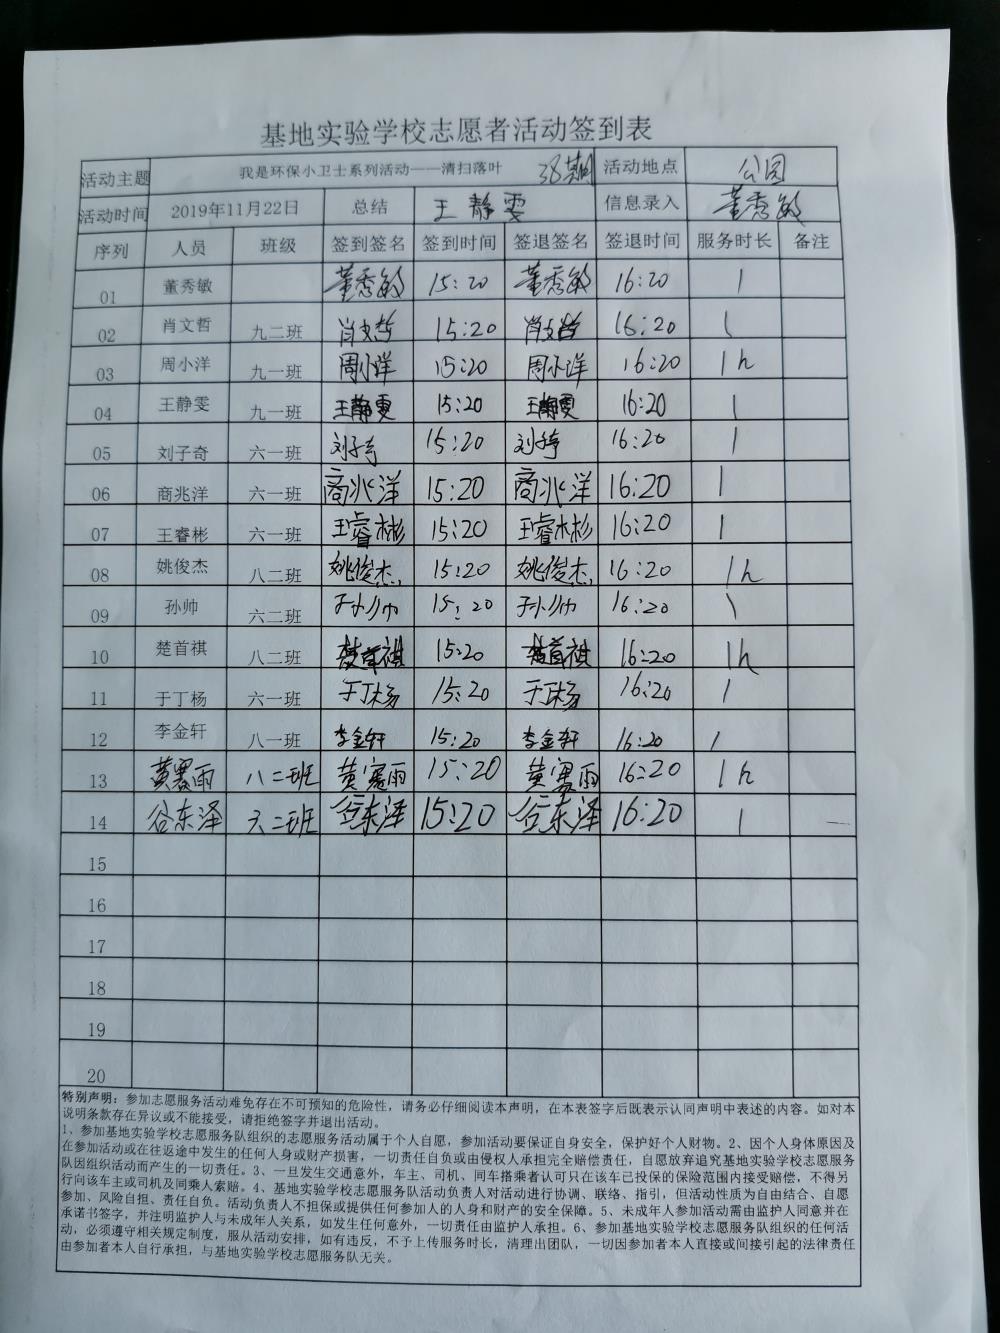 基地实验学校志愿者活动签到表
活动主题 我是环保小卫士系列活动——清扫落叶 38期 活动地点 公园
活动时间 2019年11月22日 总结 王静雯 信息录入 董秀敏
序列 人员 班级 签到签名 签到时间 签退签名 签退时间 服务时长 备注
01 董秀敏 董秀敏 15:20 董秀敏 16:20 1
02 肖文哲 九二班 肖文哲 15:20 肖文哲 16:20 1
03 周小洋 九一班 周小洋 15:20 周小洋 16:20 1h
04 王静雯 九一班 王静雯 15:20 王静雯 16:20 1
05 刘子奇 六一班 刘子奇 15:20 刘子奇 16:20 1
06 商兆洋 六一班 商兆洋 15:20 商兆洋 16:20 1
07 王睿彬 六一班 王睿彬 15:20 王睿彬 16:20 1
08 姚俊杰 八二班 姚俊杰 15:20 姚俊杰 16:20 1h
09 孙帅 六二班 孙帅 15:20 孙帅 16:20 1
10 楚首祺 八二班 楚首祺 15:20 楚首祺 16:20 1h
11 于丁杨 六一班 于丁杨 15:20 于丁杨 16:20 1
12 李金轩 八一班 李金轩 15:20 李金轩 16:20 1
13 黄赛雨 八二班 黄赛雨 15:20 黄赛雨 16:20 1h
14 谷东泽 六二班 谷东泽 15:20 谷东泽 16:20 1
15
16
17
18
19
20
特别声明：参加志愿服务活动难免存在不可预知的危险性，请务必仔细阅读本声明，在本表签字后既表示认同声明中表述的内容。如对本
说明条款存在异议或不能接受，请拒绝签字并退出活动。
1、参加基地实验学校志愿服务队组织的志愿服务活动属于个人自愿，参加活动要保证自身安全，保护好个人财物。2、因个人身体原因及
在参加活动或在往返途中发生的任何人身或财产损害，一切责任自负或由侵权人承担完全赔偿责任，自愿放弃追究基地实验学校志愿服务
队因组织活动而产生的一切责任。3、一旦发生交通意外，车主、司机、同车搭乘者认可只在该车已投保的保险范围内接受赔偿，不得另
行向该车主或司机及同乘人索赔。4、基地实验学校志愿服务队活动负责人对活动进行协调、联络、指引，但活动性质为自由结合、自愿
参加、风险自担、责任自负。活动负责人不担保或提供任何参加人的人身和财产的安全保障。5、未成年人参加活动需由监护人同意并在
承诺书签字，并注明监护人与未成年人关系，如发生任何意外，一切责任由监护人承担。6、参加基地实验学校志愿服务队组织的任何活
动，必须遵守相关规定制度，服从活动安排，如有违反，不予上传服务时长，清理出团队，一切因参加者本人直接或间接引起的法律责任
由参加者本人自行承担，与基地实验学校志愿服务队无关。